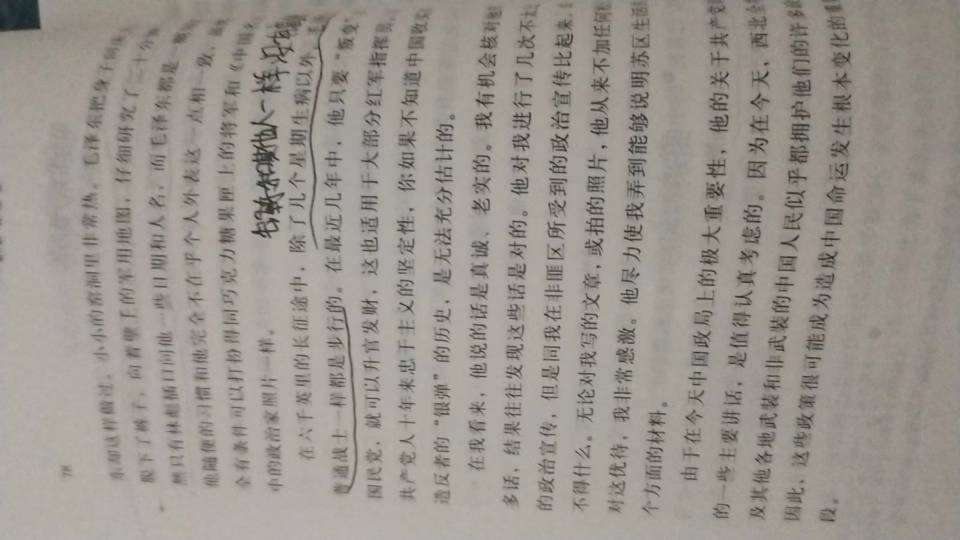 78
东却这样做过。小小的窑洞里非常热。毛泽东把身子向
脱下了裤子，向着壁上的军用地图，仔细研究了二十分
然只有林彪插口问他一些日期和人名，而毛泽东都是一
他随便的习惯和他完全不在乎个人外表这一点相一致，虽
全有条件可以打扮得同巧克力糖果匣上的将军和《中国名
中的政治家照片一样。
在六千英里的长征途中，除了几个星期生病以外，毛
普通战士一样都是步行的。在最近几年中，他只要“叛变”
国民党，就可以升官发财，这也适用于大部分红军指挥员。
共产党人十年来忠于主义的坚定性，你如果不知道中国收买
造反者的“银弹”的历史，是无法充分估计的。
在我看来，他说的话是真诚、老实的。我有机会核对他
多话，结果往往发现这些话是对的。他对我进行了几次不太
的政治宣传，但是同我在非匪区所受到的政治宣传比起来，
不得什么。无论对我写的文章，或拍的照片，他从来不加任何
对这优待，我非常感激。他尽力使我弄到能够说明苏区生活
个方面的材料。
由于在今天中国政局上的极大重要性，他的关于共产党
的一些主要讲话，是值得认真考虑的。因为在今天，西北全
及其他各地武装和非武装的中国人民似乎都拥护他们的许多
因此，这些政策很可能成为造成中国命运发生根本变化的重
段。
他人一样